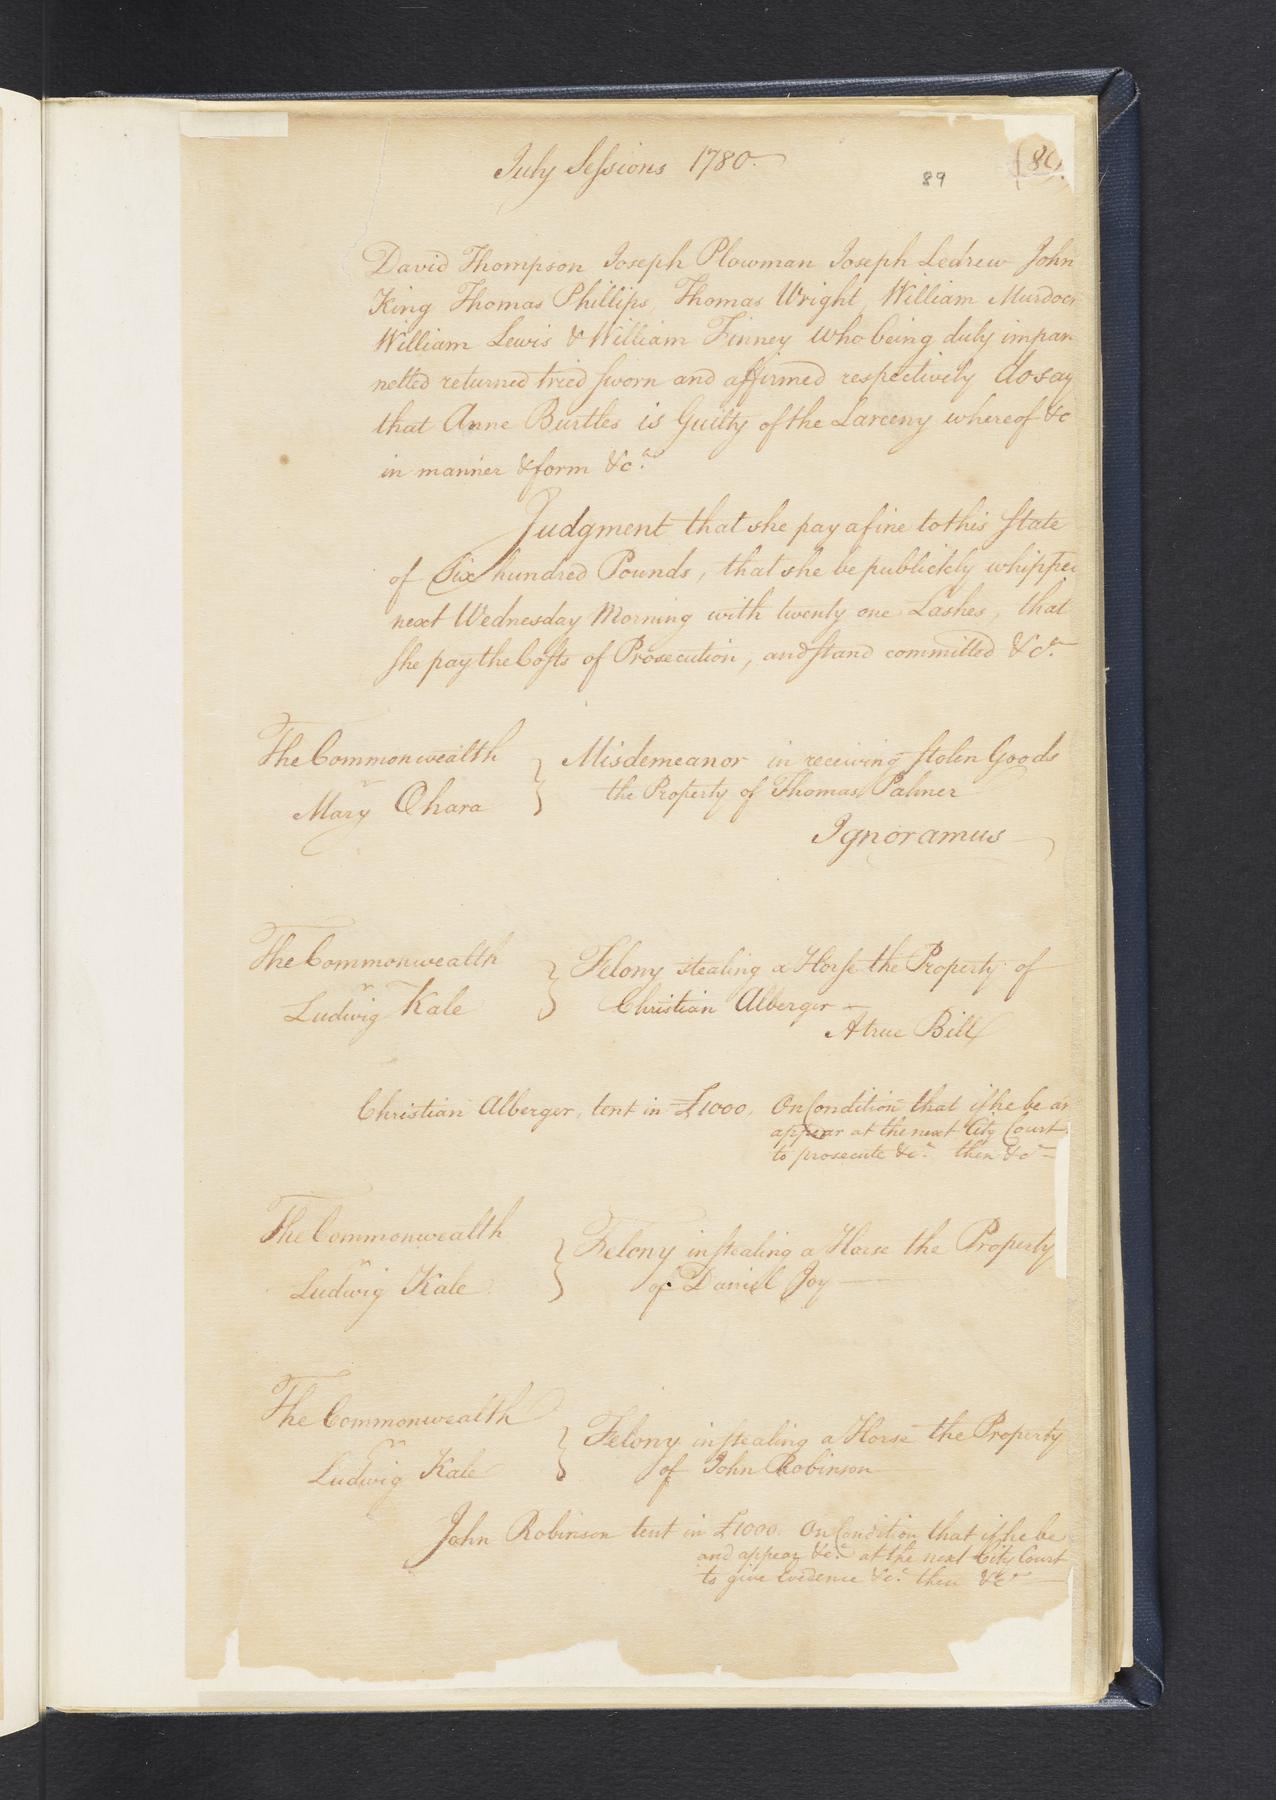 July Sessions 1780.
89
David Thompson Joseph Plowman Joseph Ledrew John
King Thomas Phillips, Thomas Wright, William Murdoc
William Lewis & William Finney who being duly impan
nelled returned tried sworn and affirmed respectively do say
that Anne Burtles is Guilty of the Larceny whereof &c
in manner & form &c.a
Judgment that she pay a fine to this State
of Six hundred Pounds, that she be publickly whipped
next Wednesday Morning with twenty one Lashes, that
she pay the Costs of Prosecution, and stand committed &c.a
The Commonwealth } Misdemeanor in receiving stolen Goods
v
Mary Ohara } the Property of Thomas Palmer
Ignoramus
The Commonwealth } Felony stealing a Horse the Property of
v
Ludwig Kale } Christian Alberger
A true Bill
Christian Alberger, tent in £1000, On Condition that if he be an
appear at the next City Court
to prosecute &c.a then &c.a
The Commonwealth } Felony in stealing a Horse the Property
v
Ludwig Kale } of Daniel Joy
The Commonwealth } Felony in stealing a Horse the Property
v
Ludwig Kale } of John Robinson
John Robinson tent in £1000. On Condition that if he be
and appear &c.a at the next City Court
to give Evidence &c.a then &c.a